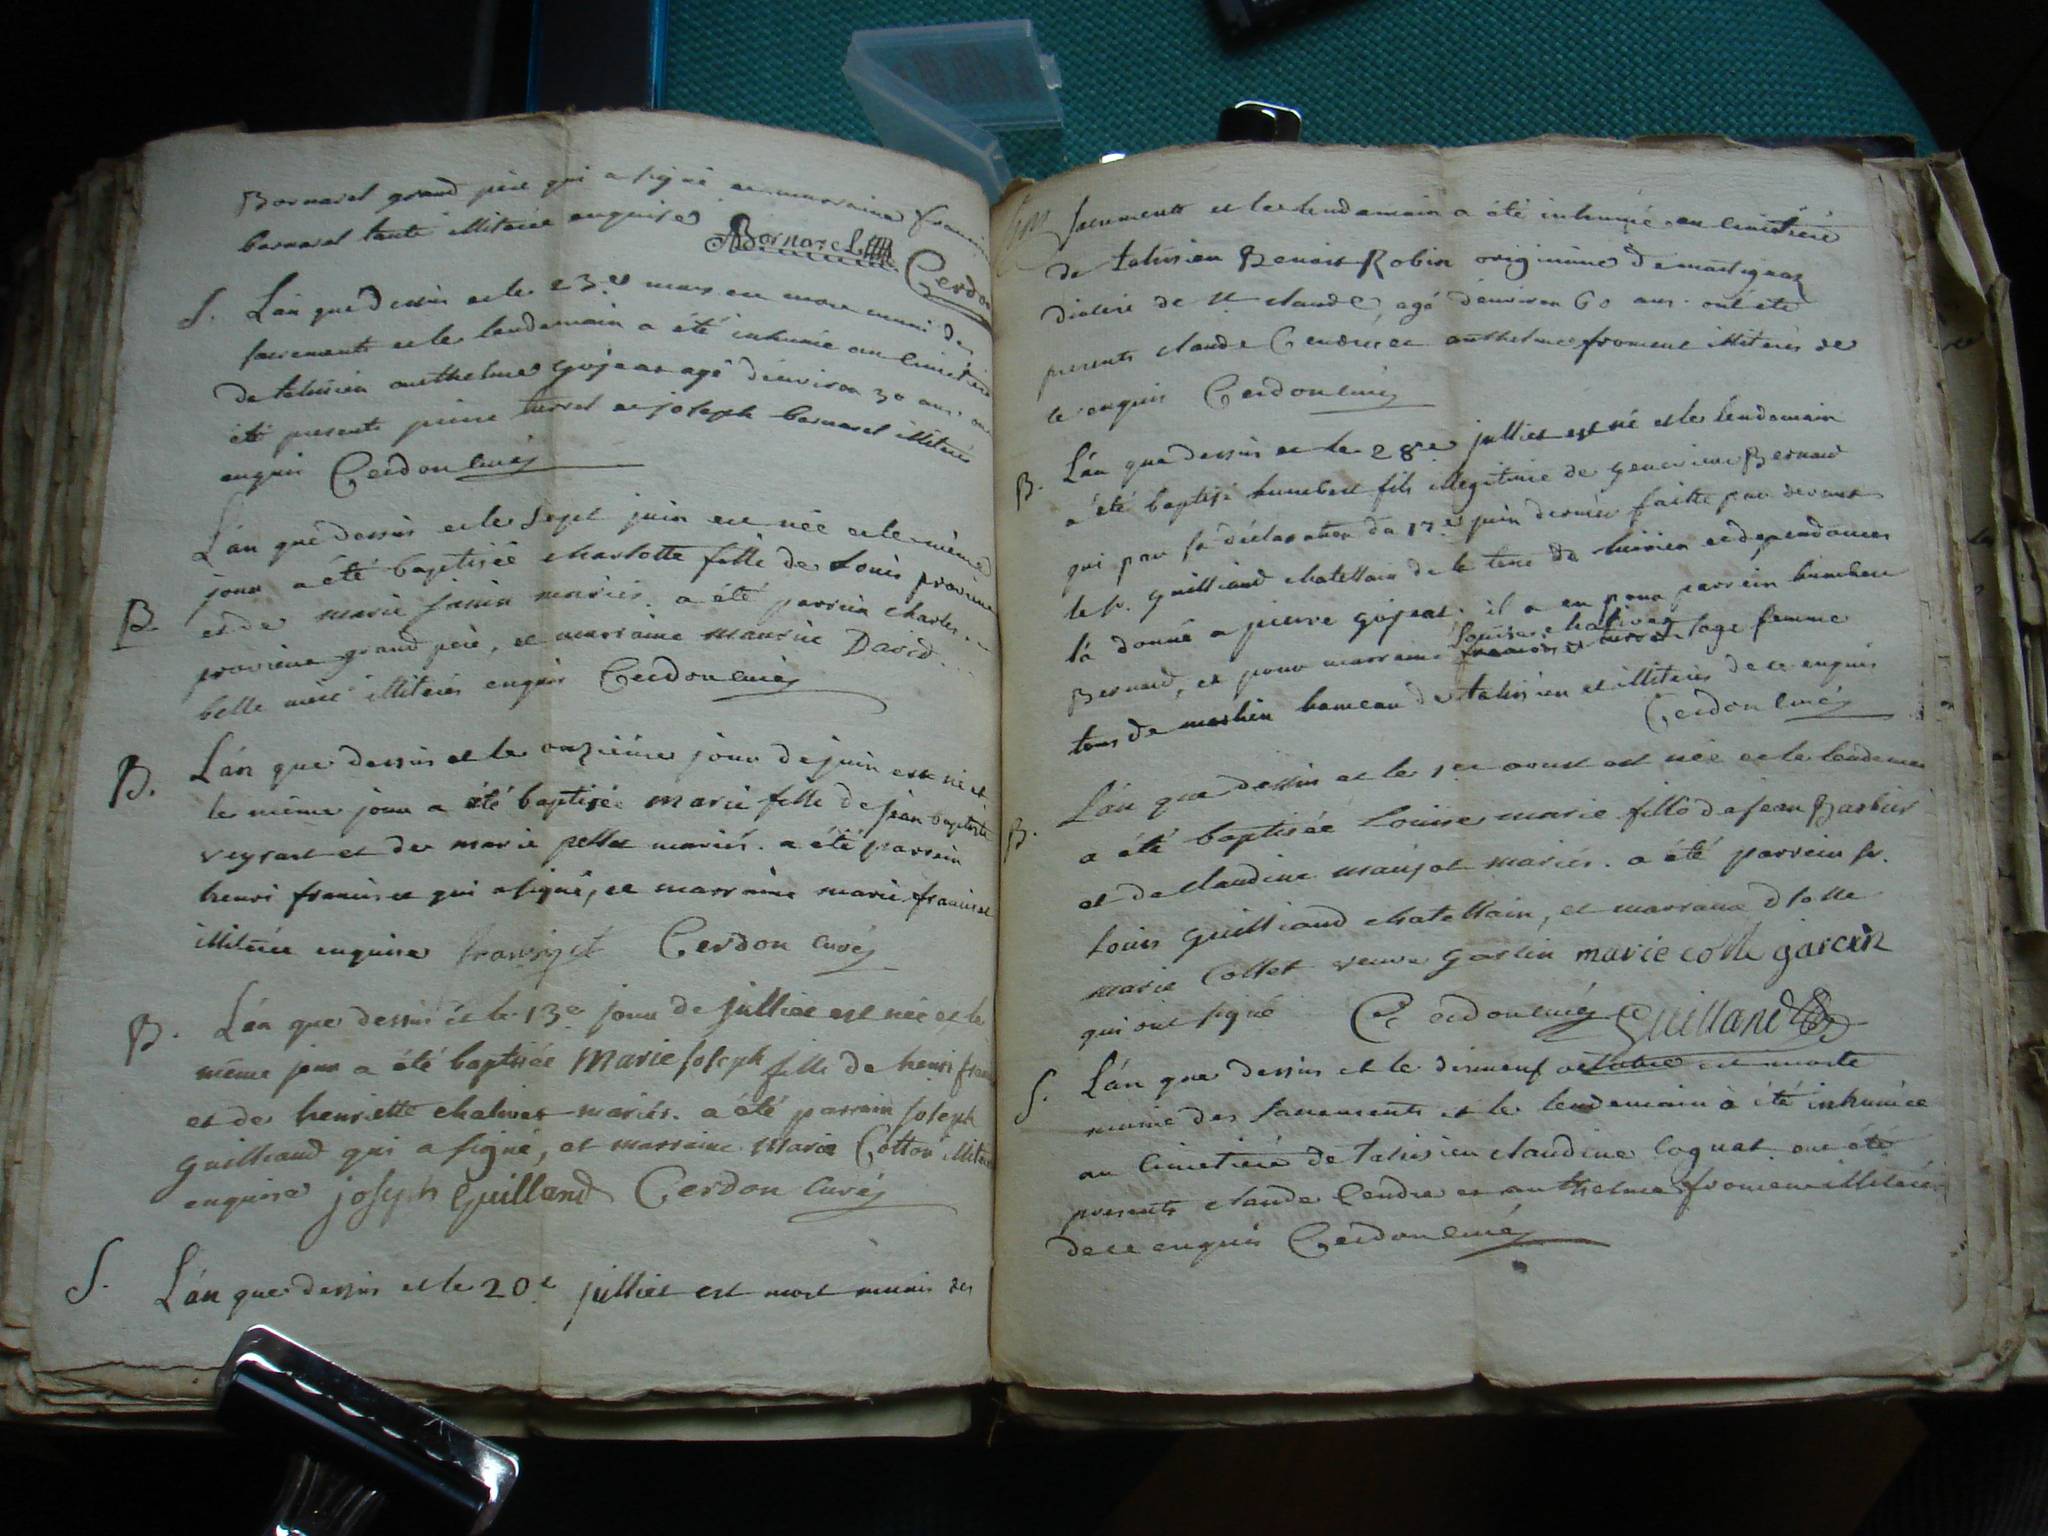 Bornarel grand père qui a signé et marraine
bornarel tante illiterée enquise Bornarel
Cerdon
S. L'an que dessus et le 23e mars est mort muni de
sacrements et le lendemain a été inhumé au cimetière
de talissieu anthelme gojeat agé d'environ 30 ans. ont
été presents pierre turrel et joseph bornarel illiterés
enquis Cerdon curé
L'an que dessus et le sept juin est née et le même
jour a été baptisée charlotte fille de Louis
B. et de marie mariés. a été parrein charles
grand père, et marraine maurise David
belle mere illiterés enquis Cerdon curé
B. L'an que dessus et le onzieme jour de juin est née et
le même jour a été baptisée marie fille de jean baptiste
veyrat et de marie pellet mariés. a été parrein
henri franciset qui a signé, et marraine marie franciset
illiterée enquise fransiset Cerdon curé
B. L'an que dessus et le 13e jour de julliet est née et le
même jour a été baptisée Marie Joseph fille de henri
et de henriette chalivet mariés. a été parrain joseph
guilliand qui a signé, et marraine Marie Cotton
enquise joseph Guilland Cerdon Curé
S. L'an que dessus et le 20e julliet est mort munis des
sacrements et le lendemain a été inhumé au cimetière
de talissieu Benoit Robin originaire de martignaz
diocèse de st. claude, agé d'environ 60 ans. ont été
presents claude Cendre et anthelme froment illiterés de
ce enquis Cerdon curé
B. L'an que dessus et le 28e julliet est né et le lendemain
a été baptisé humbert fils illegitime de genevieve Bernard
qui par sa déclaration du 17e juin dernier faitte par devant
le sr. guilliand chatellain de la terre de et dependances
l'a donné a pierre gojeat. il a eu pour parrein humbert
louise chalivet
Bernard, et pour marraine sage femme
tous de marlieu hameau de talissieu et illiterés de ce enquis
Cerdon curé
L'an que dessus et le 1er aoust est née et le lendemain
B. a été baptisée Louise marie fille de jean Barbier
et de claudine maujot mariés. a été parrein sr.
Louis guilliand chatellain, et marraine dlle
marie Collet veuve garcin marie colle garcin
qui ont signé Cerdon curé Guilland
S. L'an que dessus et le disneuf octobre est morte
munie des sacrements et le lendemain a été inhumée
au cimetière de talissieu claudine cognat ont été
presents claude Cendre et anthelme froment illiterés
de ce enquis Cerdon curé